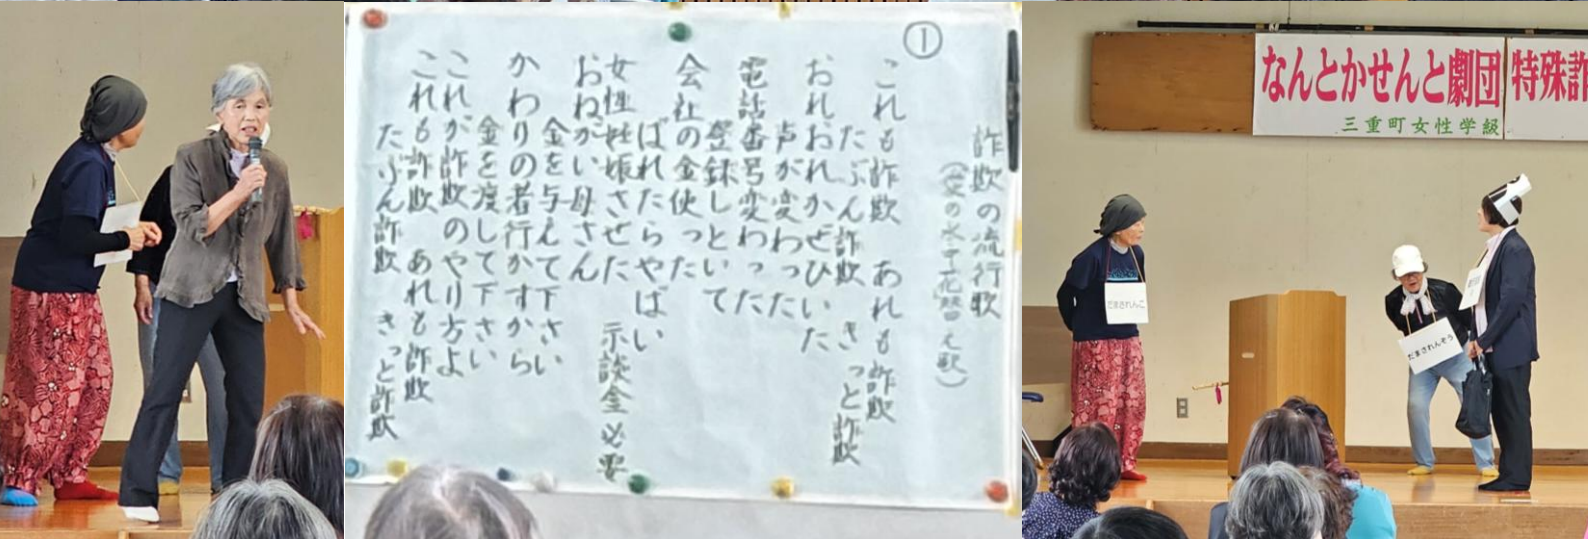 ①
詐欺の流行歌
(愛の水中花替え歌)
これも詐欺 あれも詐欺
たぶん詐欺 きっと詐欺
おれおれかぜひいた
声が変わった
電話番号変わった
登録しといて
会社の金使った
ばれたらやばい
女性妊娠させた 示談金必要
おねがい母さん
金を与えて下さい
かわりの者行かすから
金を渡して下さい
これが詐欺のやり方よ
これも詐欺 あれも詐欺
たぶん詐欺 きっと詐欺
なんとかせんと劇団 特殊詐
三重町女性学級
だまされんぞう